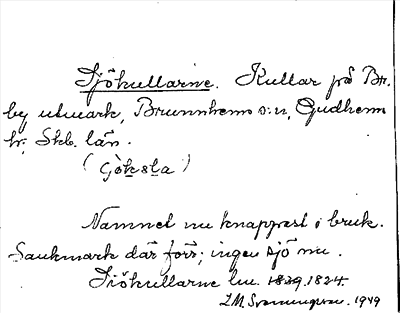 Sjökullarne. Kullar på Br.
by utmark, Brunnhems s:n, Gudhems
hr, Skb. län.
(
Namnet nu knappast i bruk.
Sankmark där förr; ingen sjö nu.
Siökullarne lm. 1829. 1824.
1949